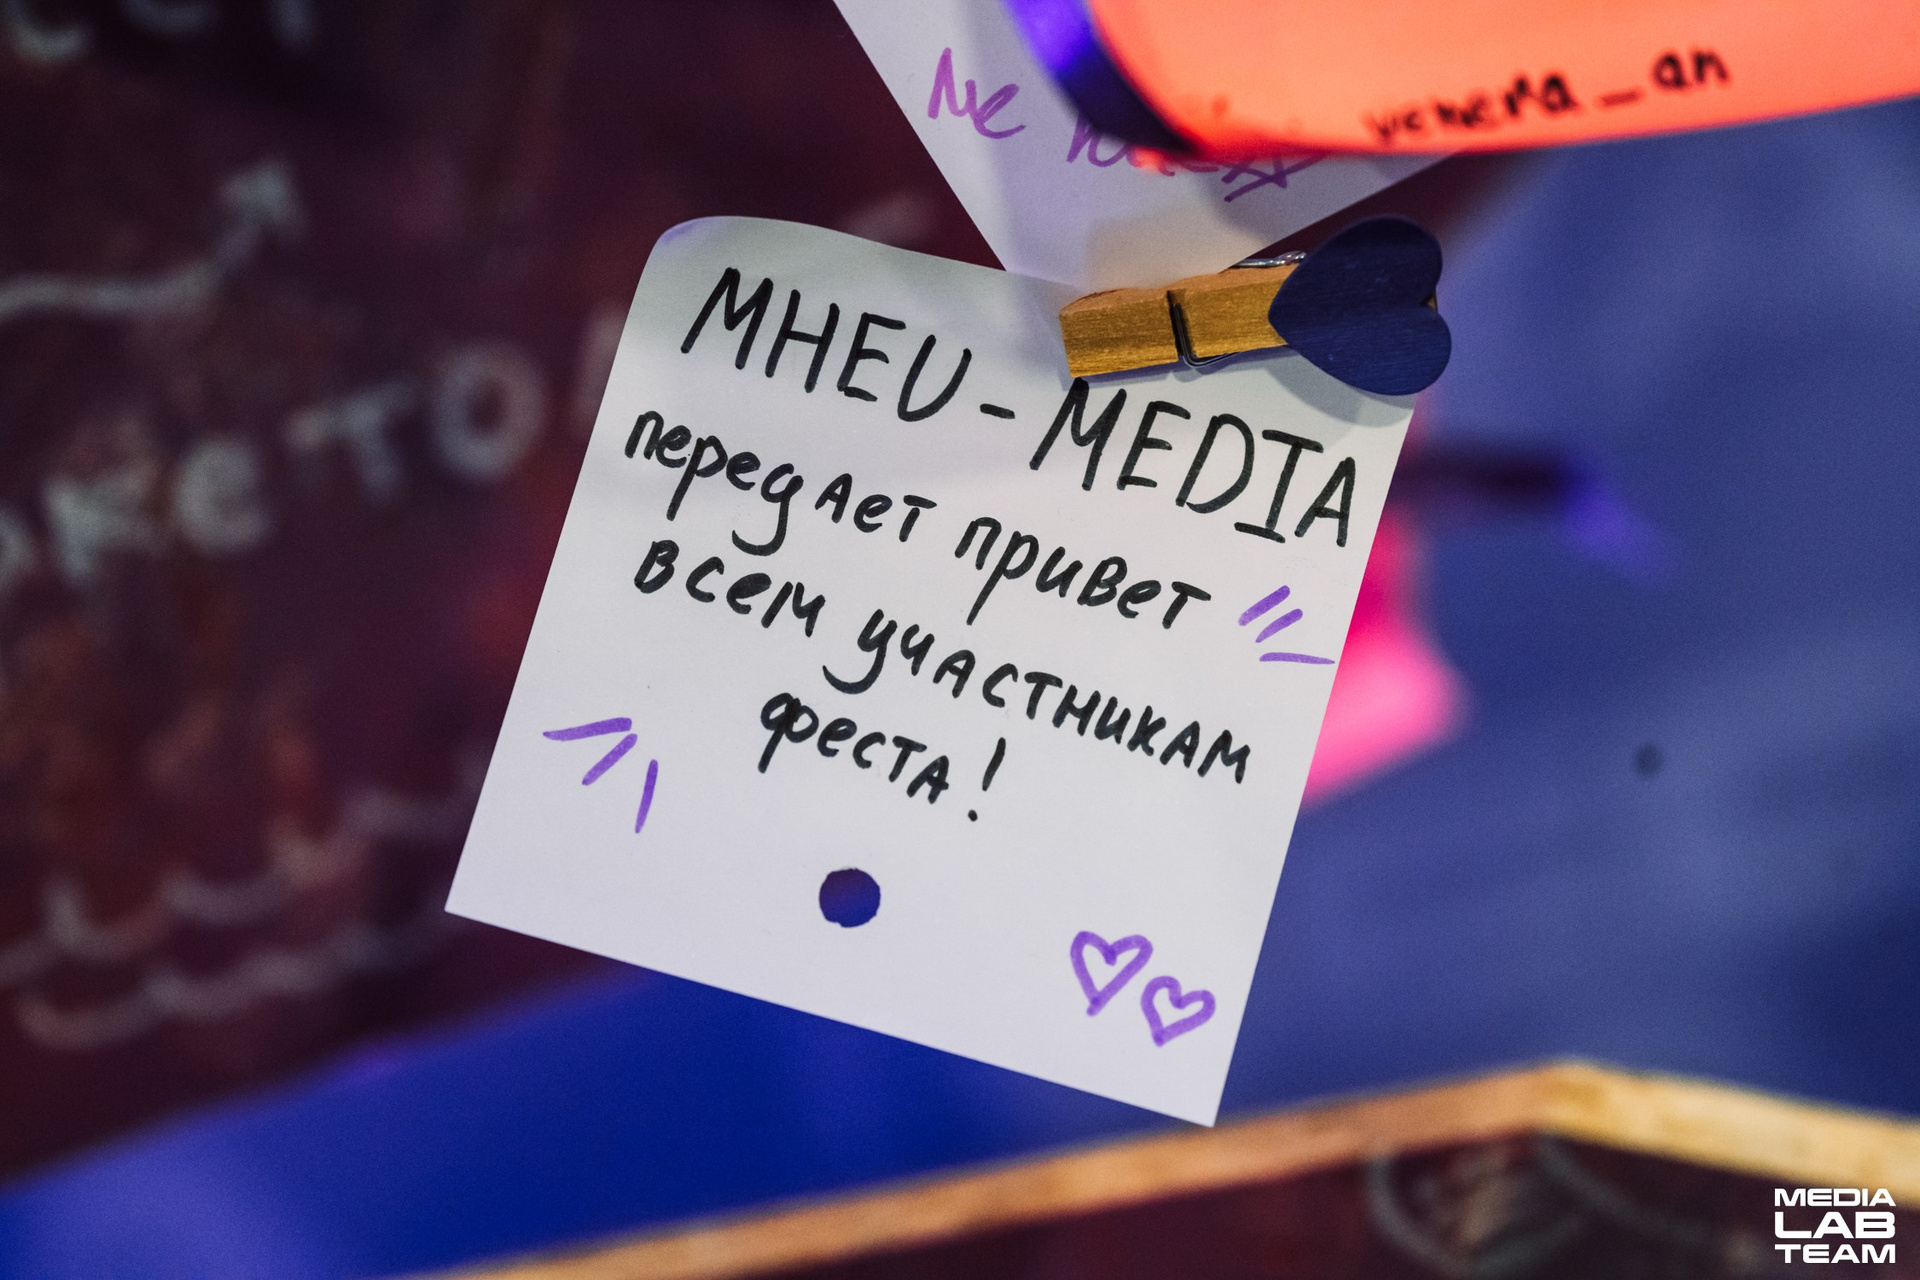 venera_an
не
MHEU-MEDIA
передает привет
всем участникам
феста!
MEDIA
LAB
TEAM